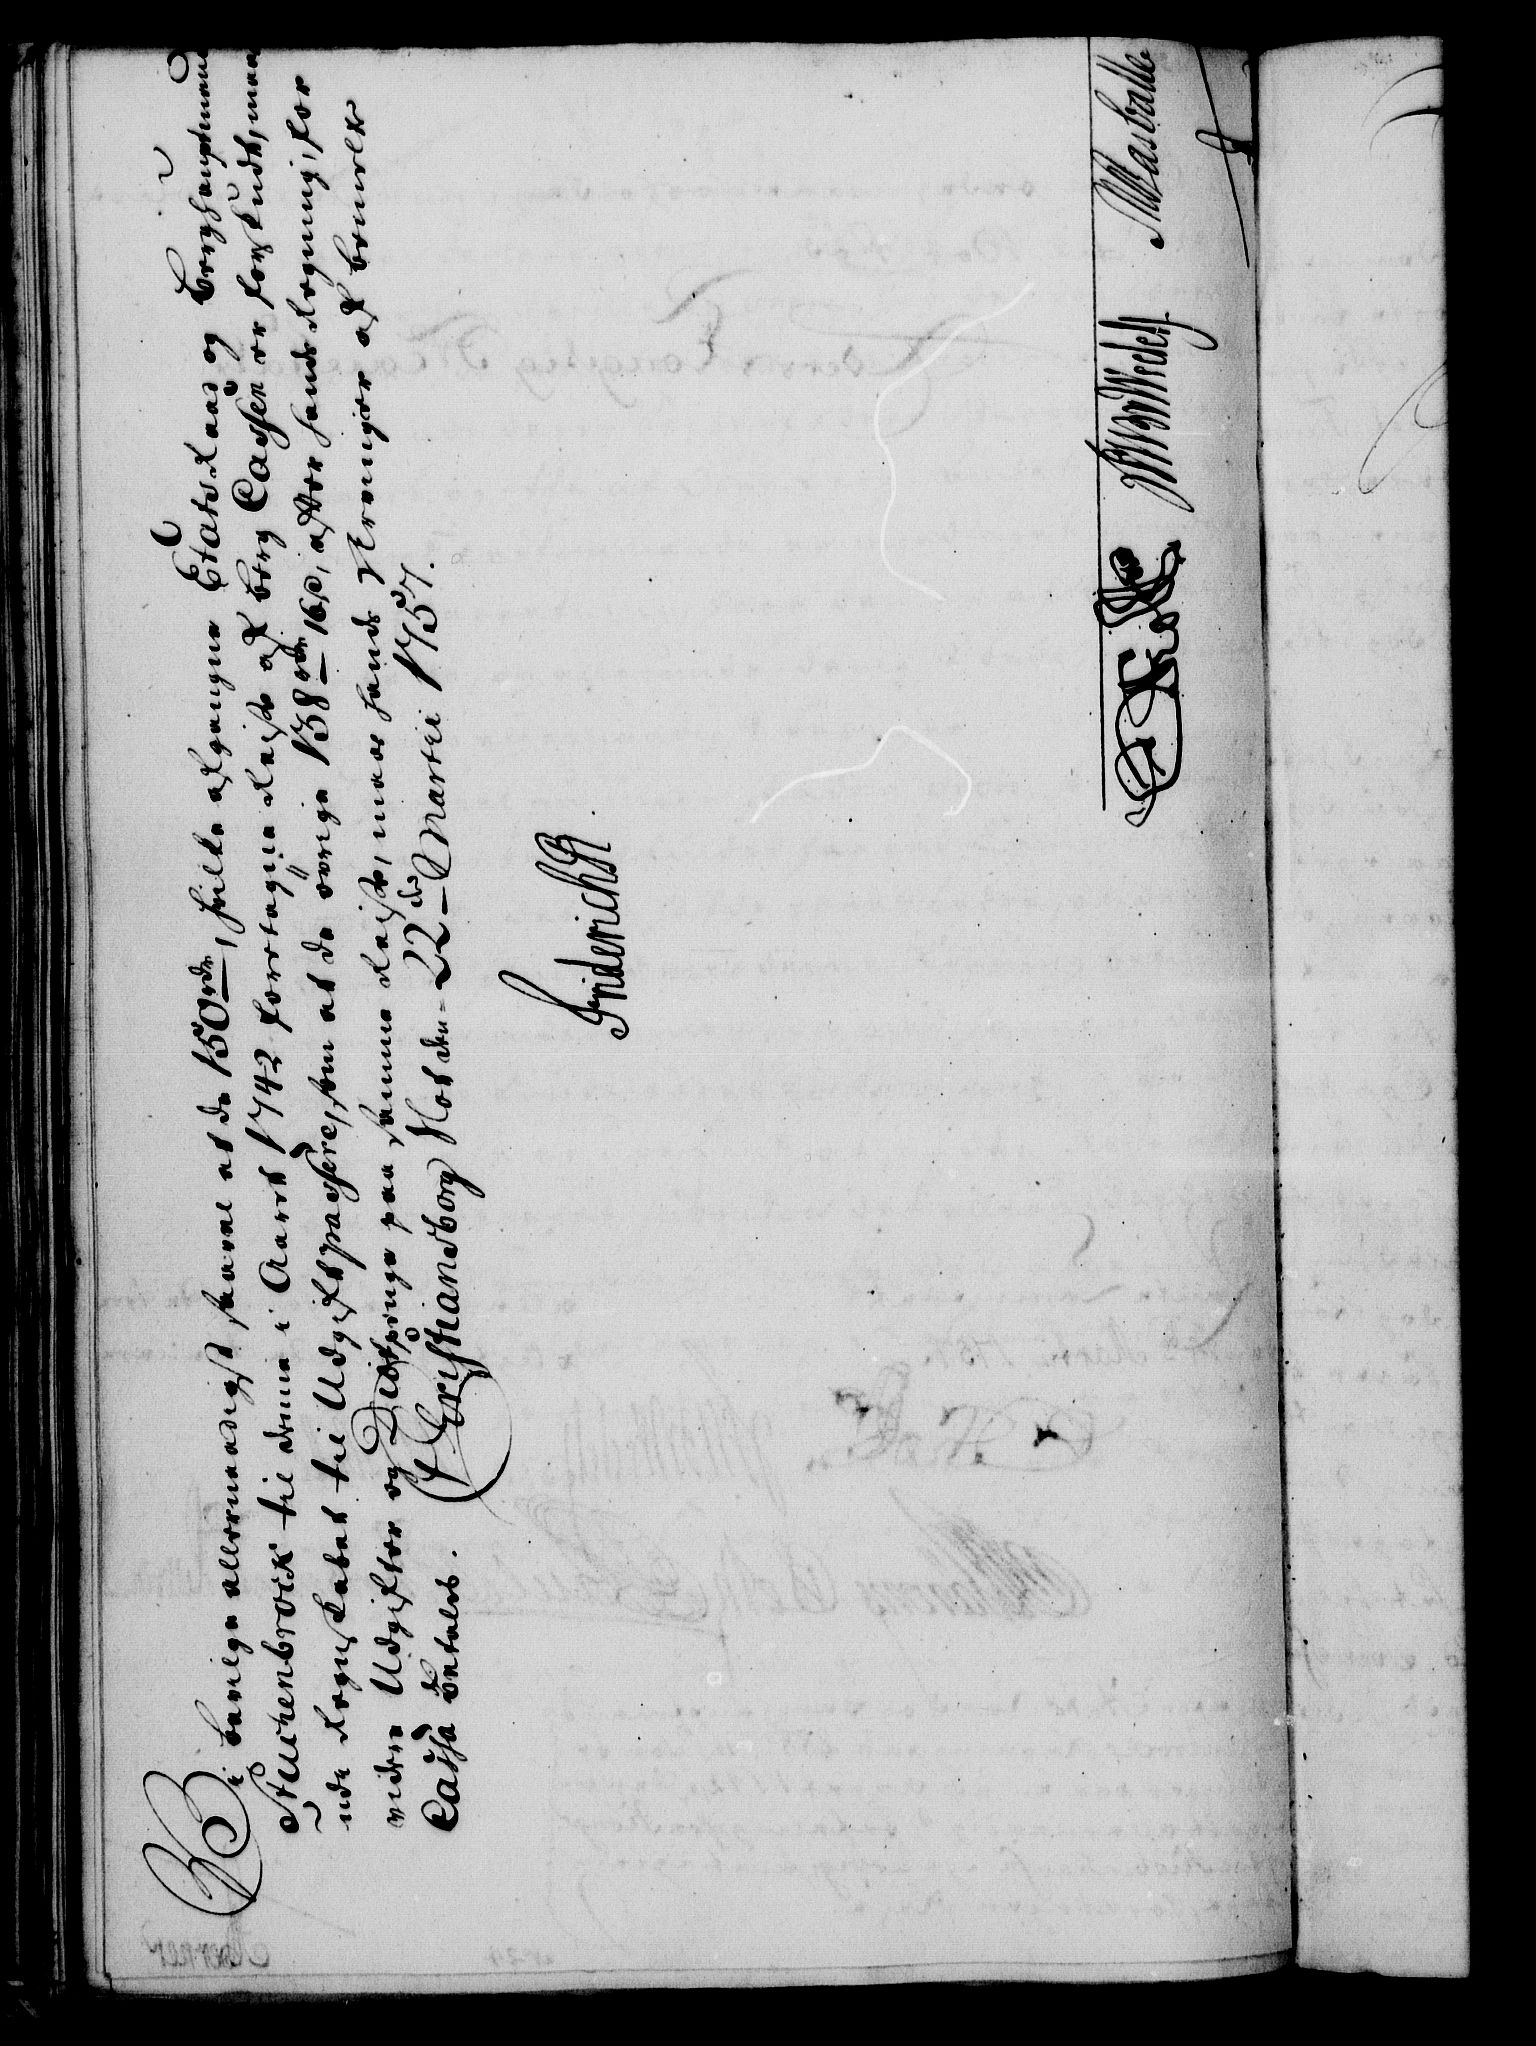 Vi bevilge allernaadigst saavel at de 150 rdr, hvilke afgangne Etats Raad og Berghauptmand
Stuckenbrock til denne i Aaret 1742 foretagne Reise af Berg Cassen er forskudt, maae
udi Regnskabet til Udgift passere, som at de øvrige 158 rdr 16 s, efter hands Regning, for
videre Udgifter og Diætpenge paa samme Reise, maae hands Arvinger af bemelte
Cassa betales. Christiansborg Slot den 22de Martii 1757.
Friderich R
Wedell